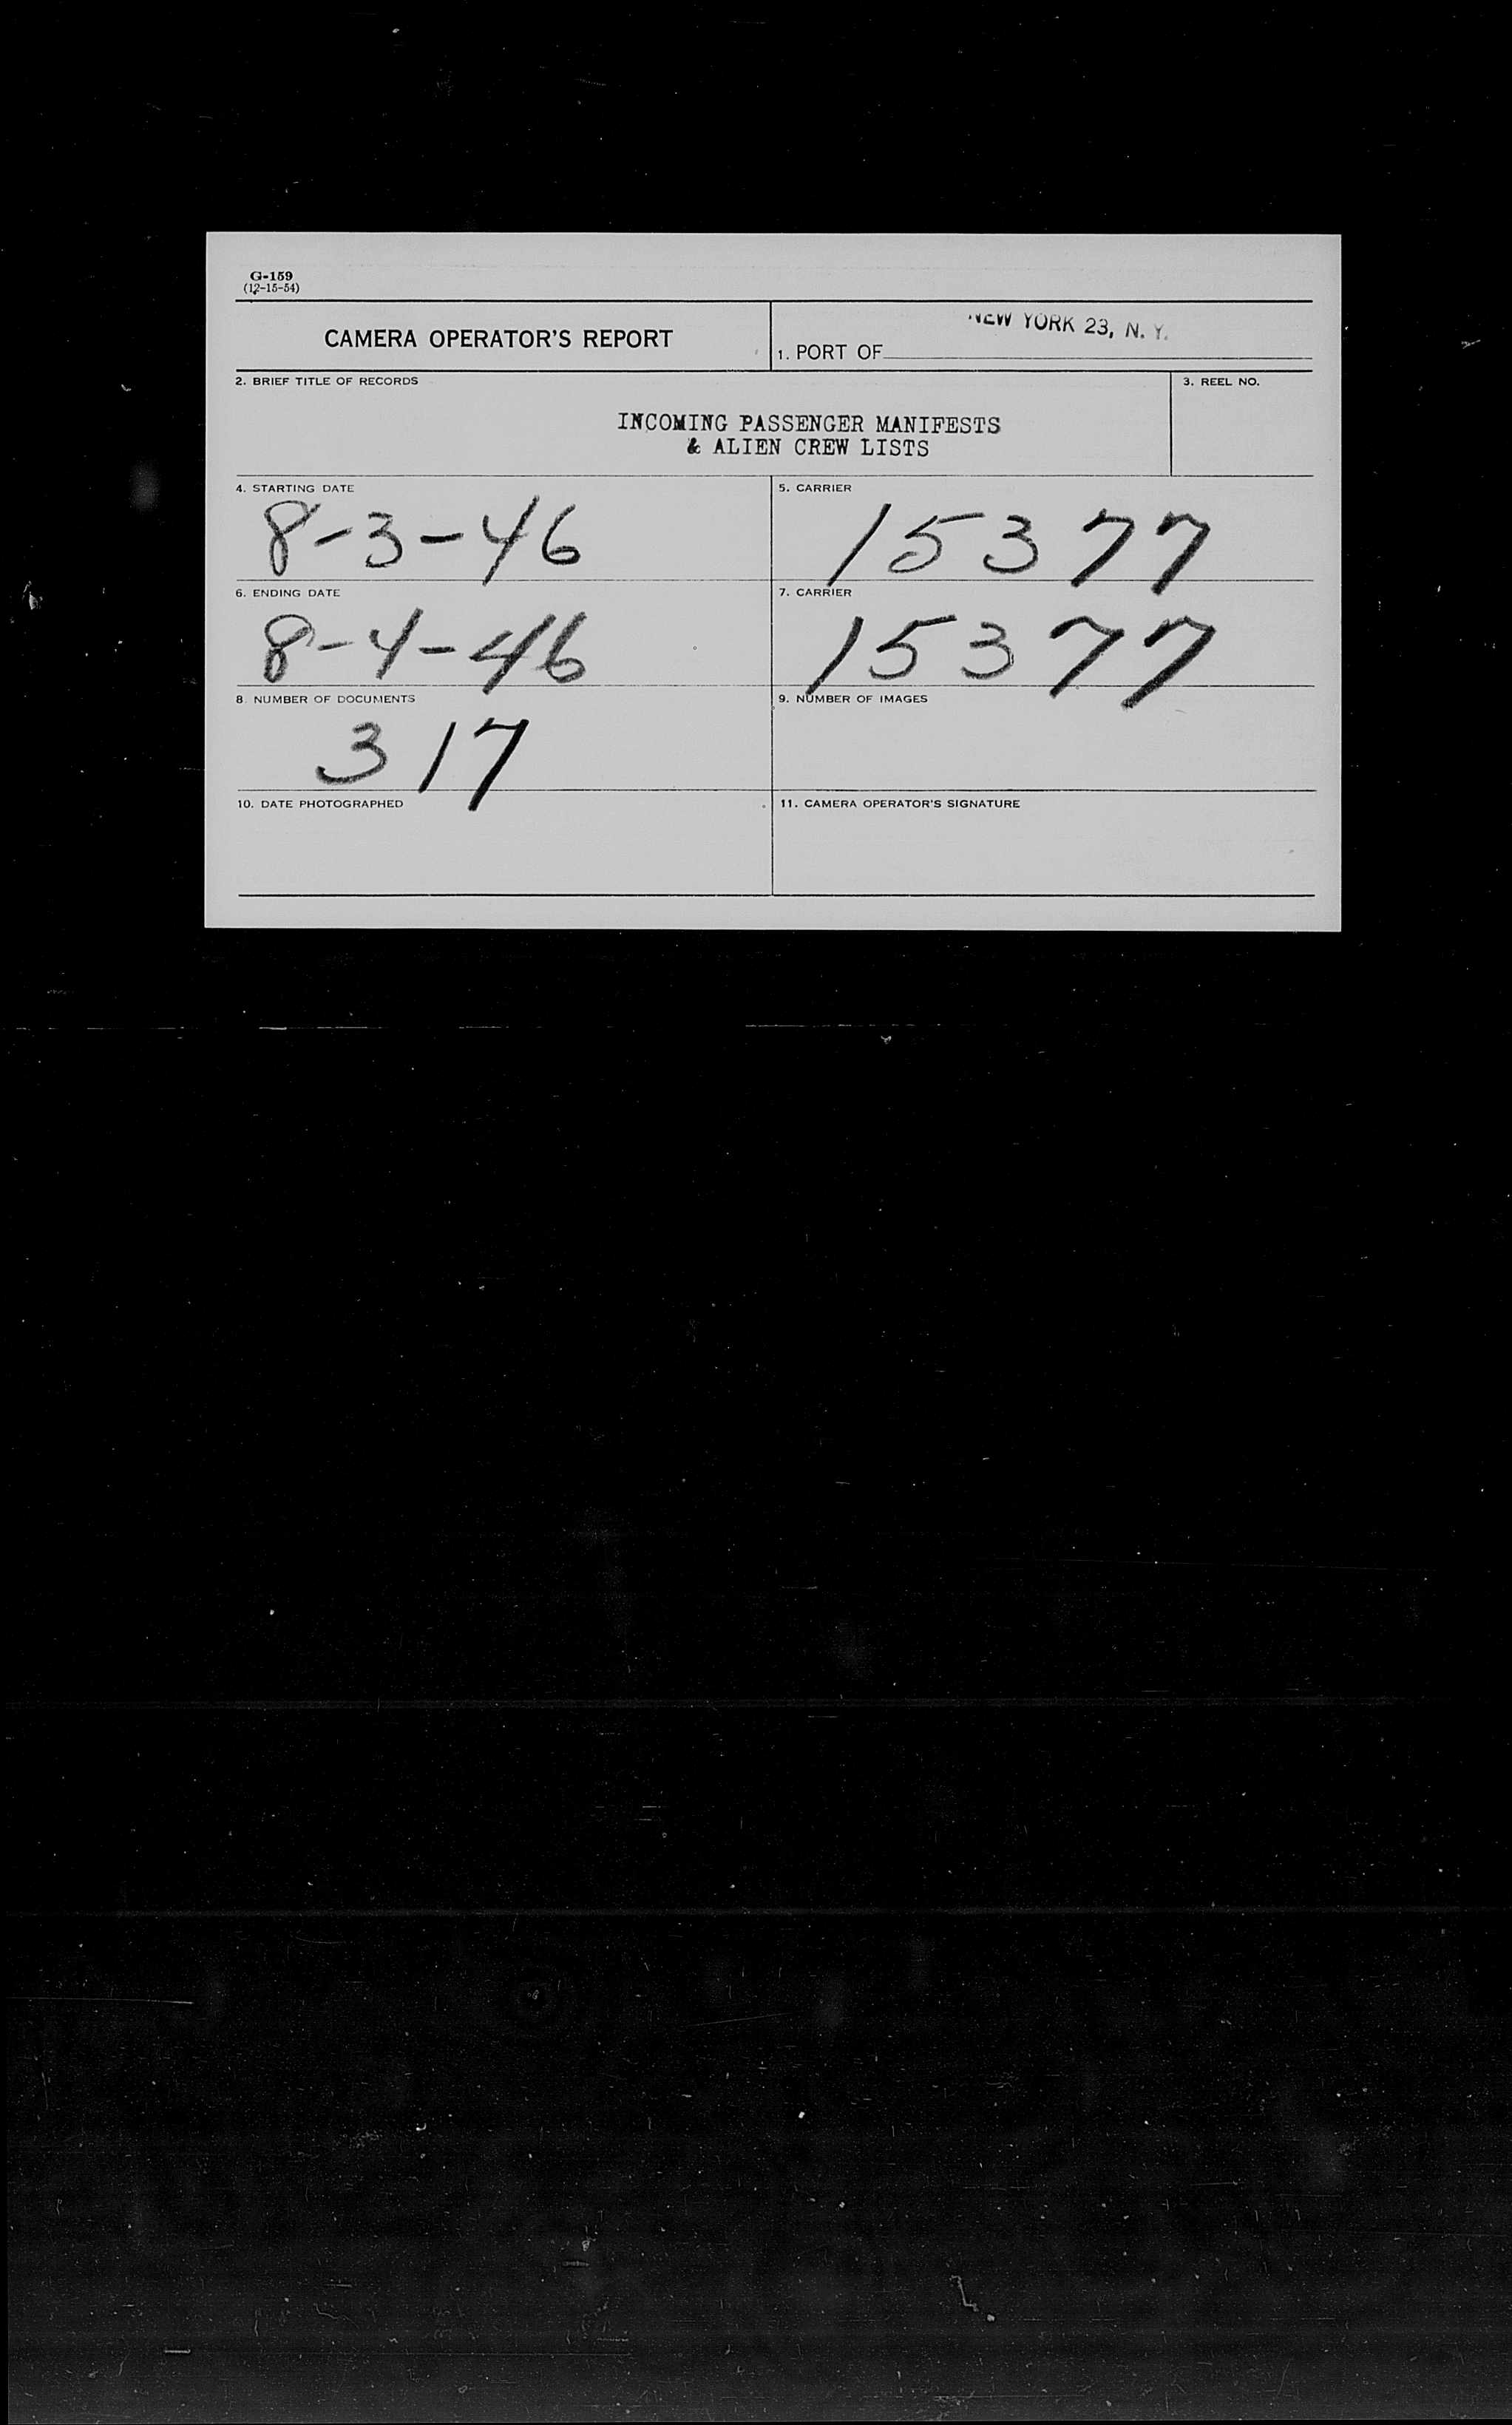 G-159
(12-15-54)
CAMERA OPERATOR'S REPORT
1. PORT OF NEW YORK 23, N. Y.
2. BRIEF TITLE OF RECORDS
INCOMING PASSENGER MANIFESTS
& ALIEN CREW LISTS
3. REEL NO.
4. STARTING DATE
8-3-46
5. CARRIER
15377
6. ENDING DATE
8-4-46
7. CARRIER
15377
8. NUMBER OF DOCUMENTS
317
9. NUMBER OF IMAGES
10. DATE PHOTOGRAPHED
11. CAMERA OPERATOR'S SIGNATURE